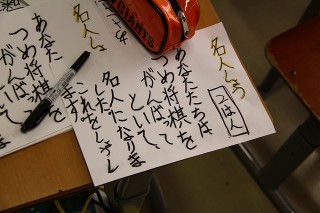 名人しょう
あなたたちは
つめ将棋を
がんばって
といて、
名人になりま
した。
これをしょうし
ます。
名人しょ
あなた
つめ将棋
がんば
とい
GIANTS